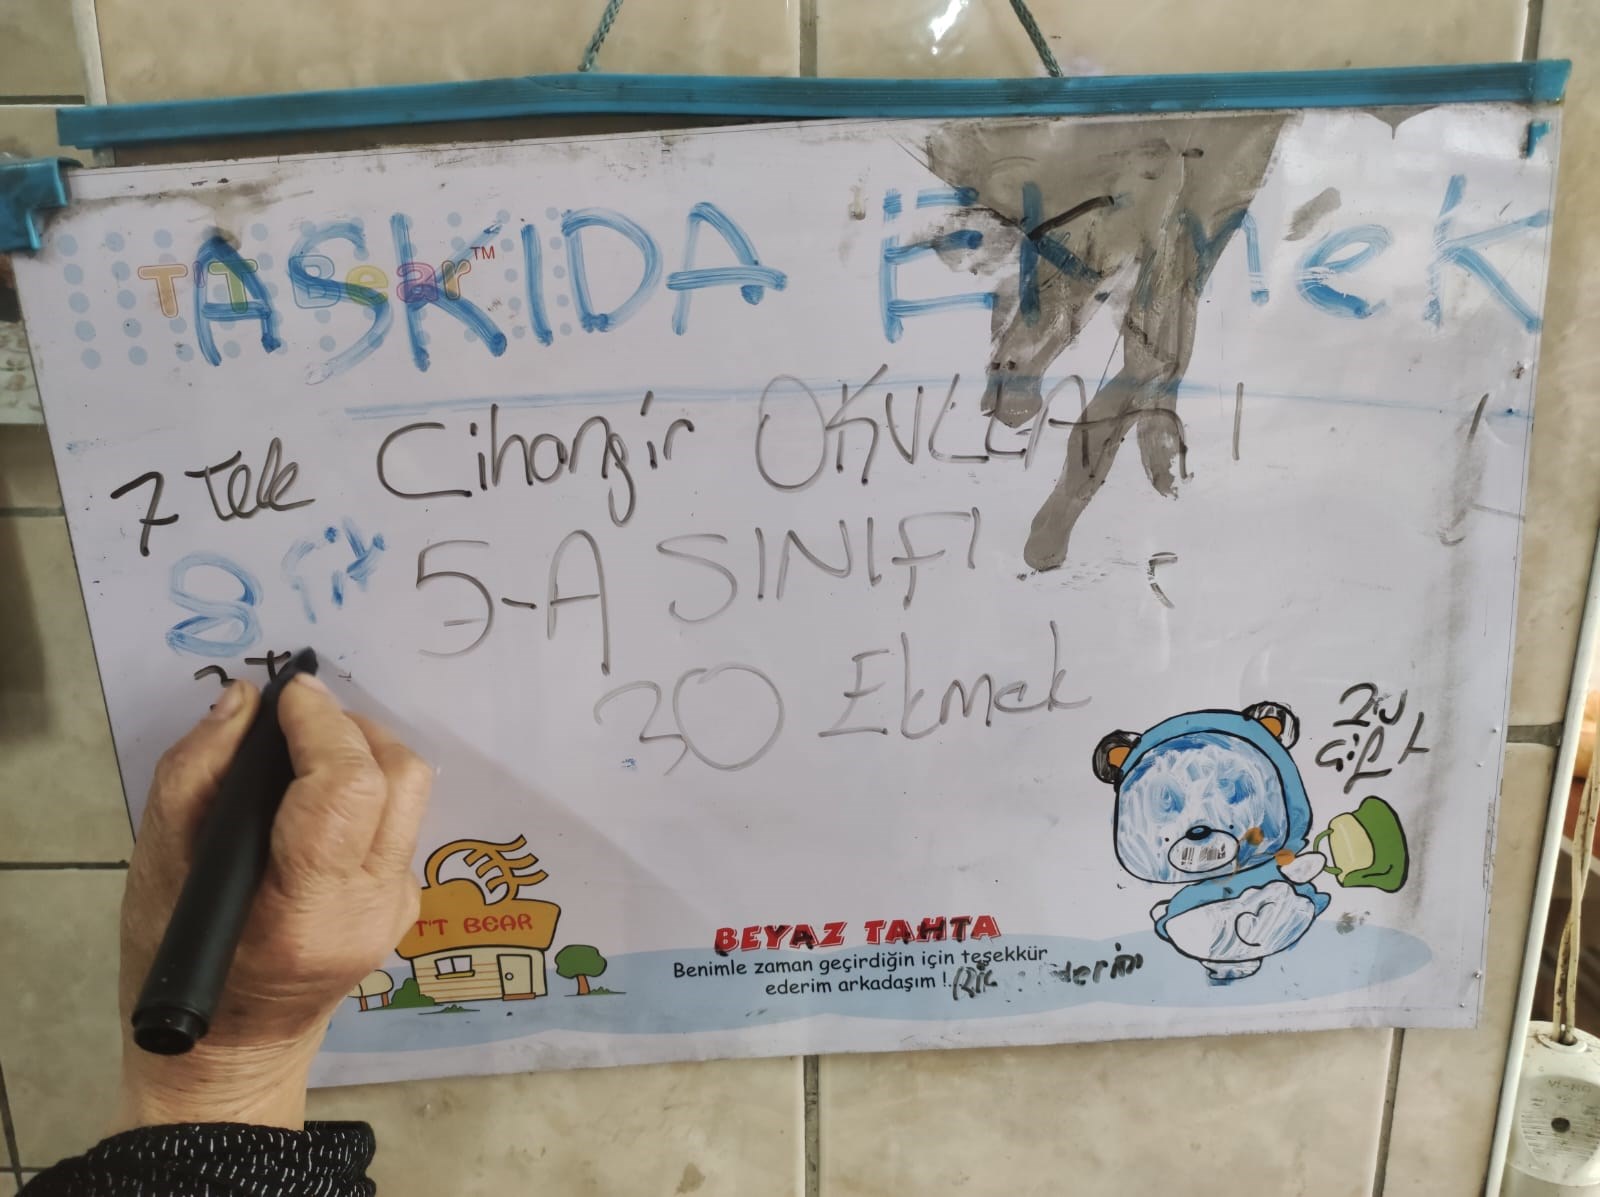 T'T Bear™
ASKIDA EKmeK
7 Tek Cihangir OKULLARI
8 5-A SINIFI
30 Ekmek
T'T BEAR
BEYAZ TAHTA
Benimle zaman geçirdiğin için teşekkür
ederim arkadaşım !